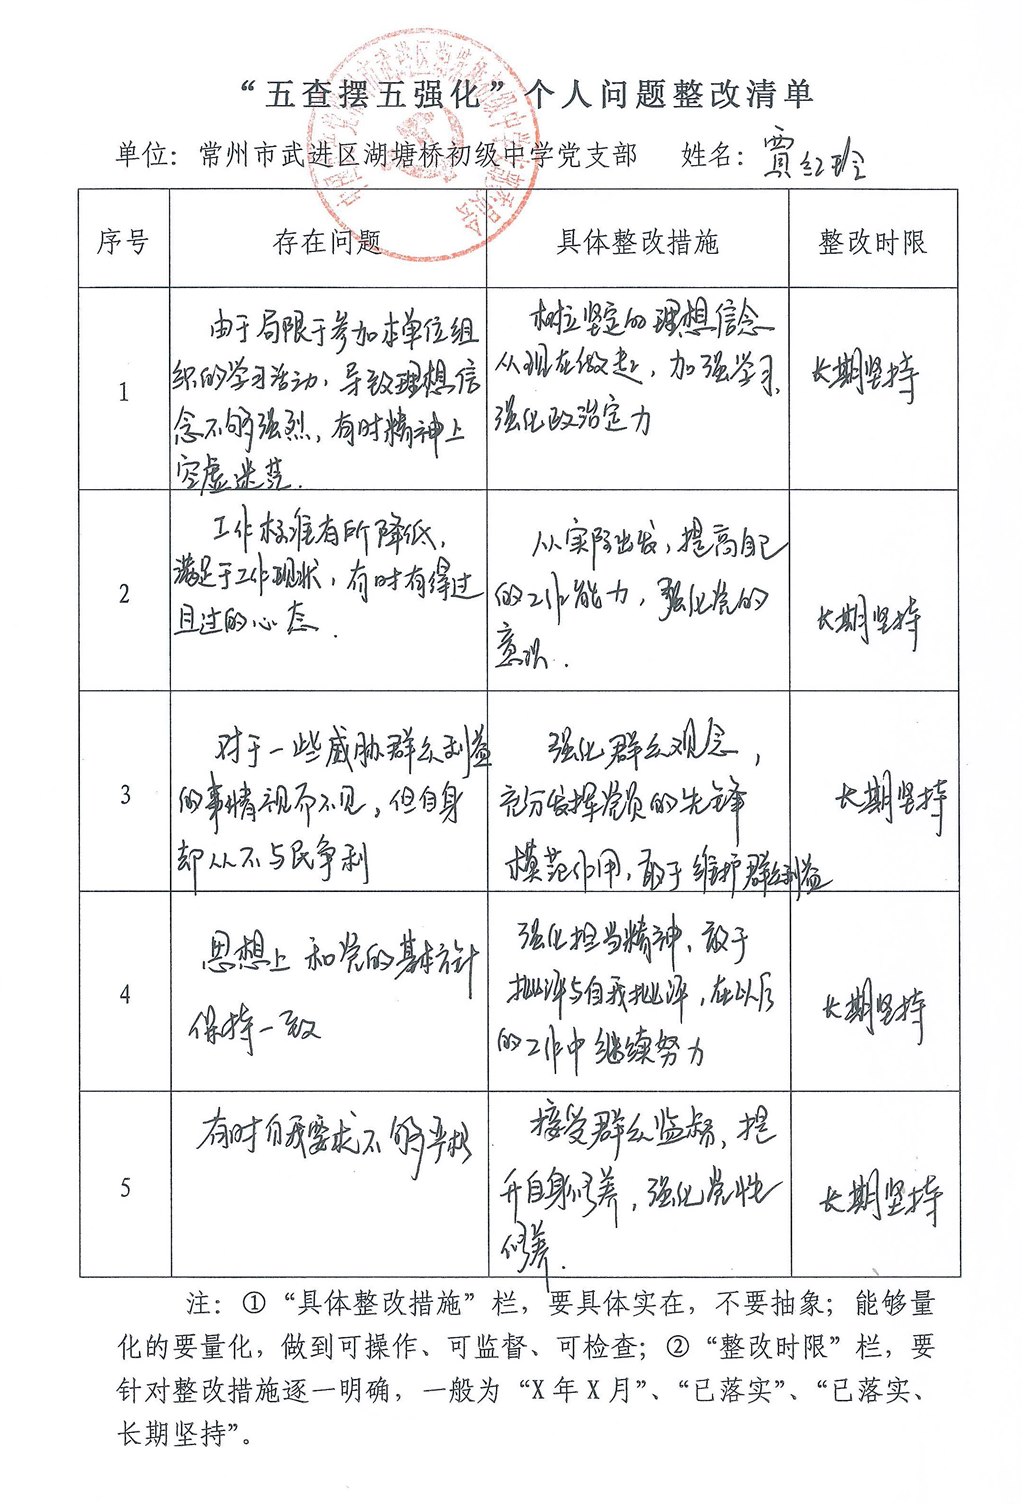 “五查摆五强化”个人问题整改清单
单位：常州市武进区湖塘桥初级中学党支部 姓名：贾红玲
序号 存在问题 具体整改措施 整改时限
1
由于局限于参加本单位组
织的学习活动，导致理想信
念不够强烈，有时精神上
空虚迷茫．
树立坚定的理想信念
从现在做起，加强学习，
强化政治定力
长期坚持
2
工作标准有所降低，
满足于工作现状，有时有得过
且过的心态．
从实际出发，提高自己
的工作能力，强化党的
意识．
长期坚持
3
对于一些威胁群众利益
的事情视而不见，但自身
却从不与民争利
强化群众观念，
充分发挥党员的先锋
模范作用，敢于维护群众利益
长期坚持
4
思想上和党的基本方针
保持一致
强化担当精神，敢于
批评与自我批评，在以后
的工作中继续努力
长期坚持
5
有时自我要求不够严格
接受群众监督，提
升自身修养，强化党性
修养．
长期坚持
注：①“具体整改措施”栏，要具体实在，不要抽象；能够量
化的要量化，做到可操作、可监督、可检查；②“整改时限”栏，要
针对整改措施逐一明确，一般为“X年X月”、“已落实”、“已落实、
长期坚持”。